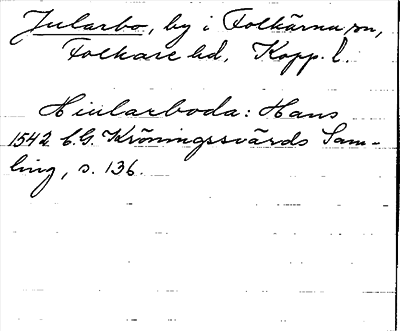 Jularbo, by i Folkärna sn,
Folkare hd, Kopp. l.
Hiularboda: Hans
1542 C.G. Kröningssvärds Sam-
ling, s. 136.